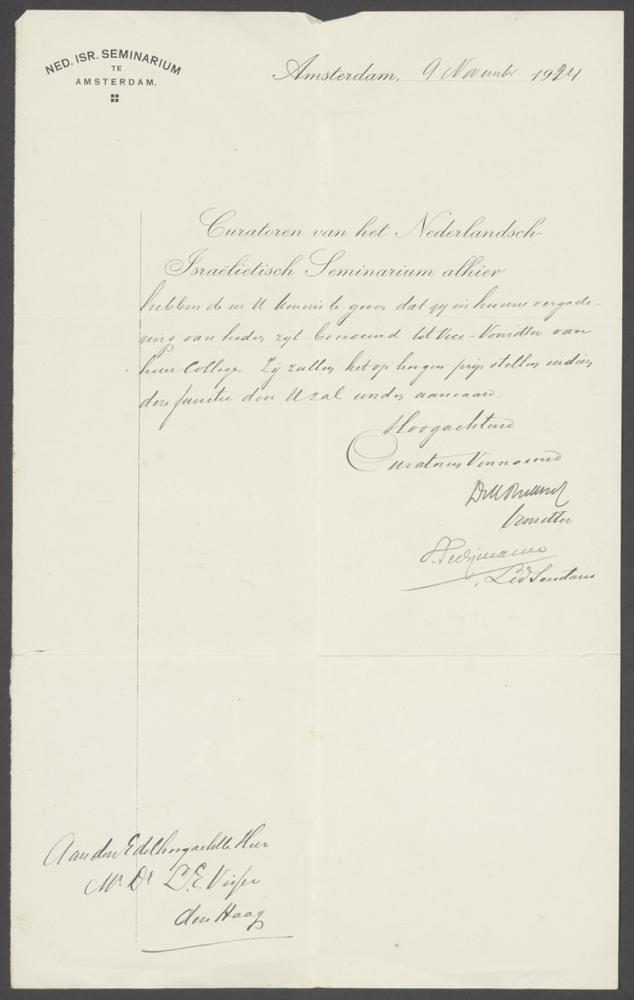 NED. ISR. SEMINARIUM
TE
AMSTERDAM.
Amsterdam, 9 November 1924
Curatoren van het Nederlandsch-
Israëlietisch Seminarium alhier
hebben de eer U kennis te geven dat gij in hunne vergade-
ring van heden zijt benoemd tot Vice-Voorzitter van
hun College. Zij zullen het op hoogen prijs stellen indien
deze functie door U zal worden aanvaard.
Hoogachtend
Curatoren Voornoemd
Voorzitter
Lid Secretaris
Aan den Edelhoogachtb. Heer
Mr. Dr. L. E. Visser
den Haag